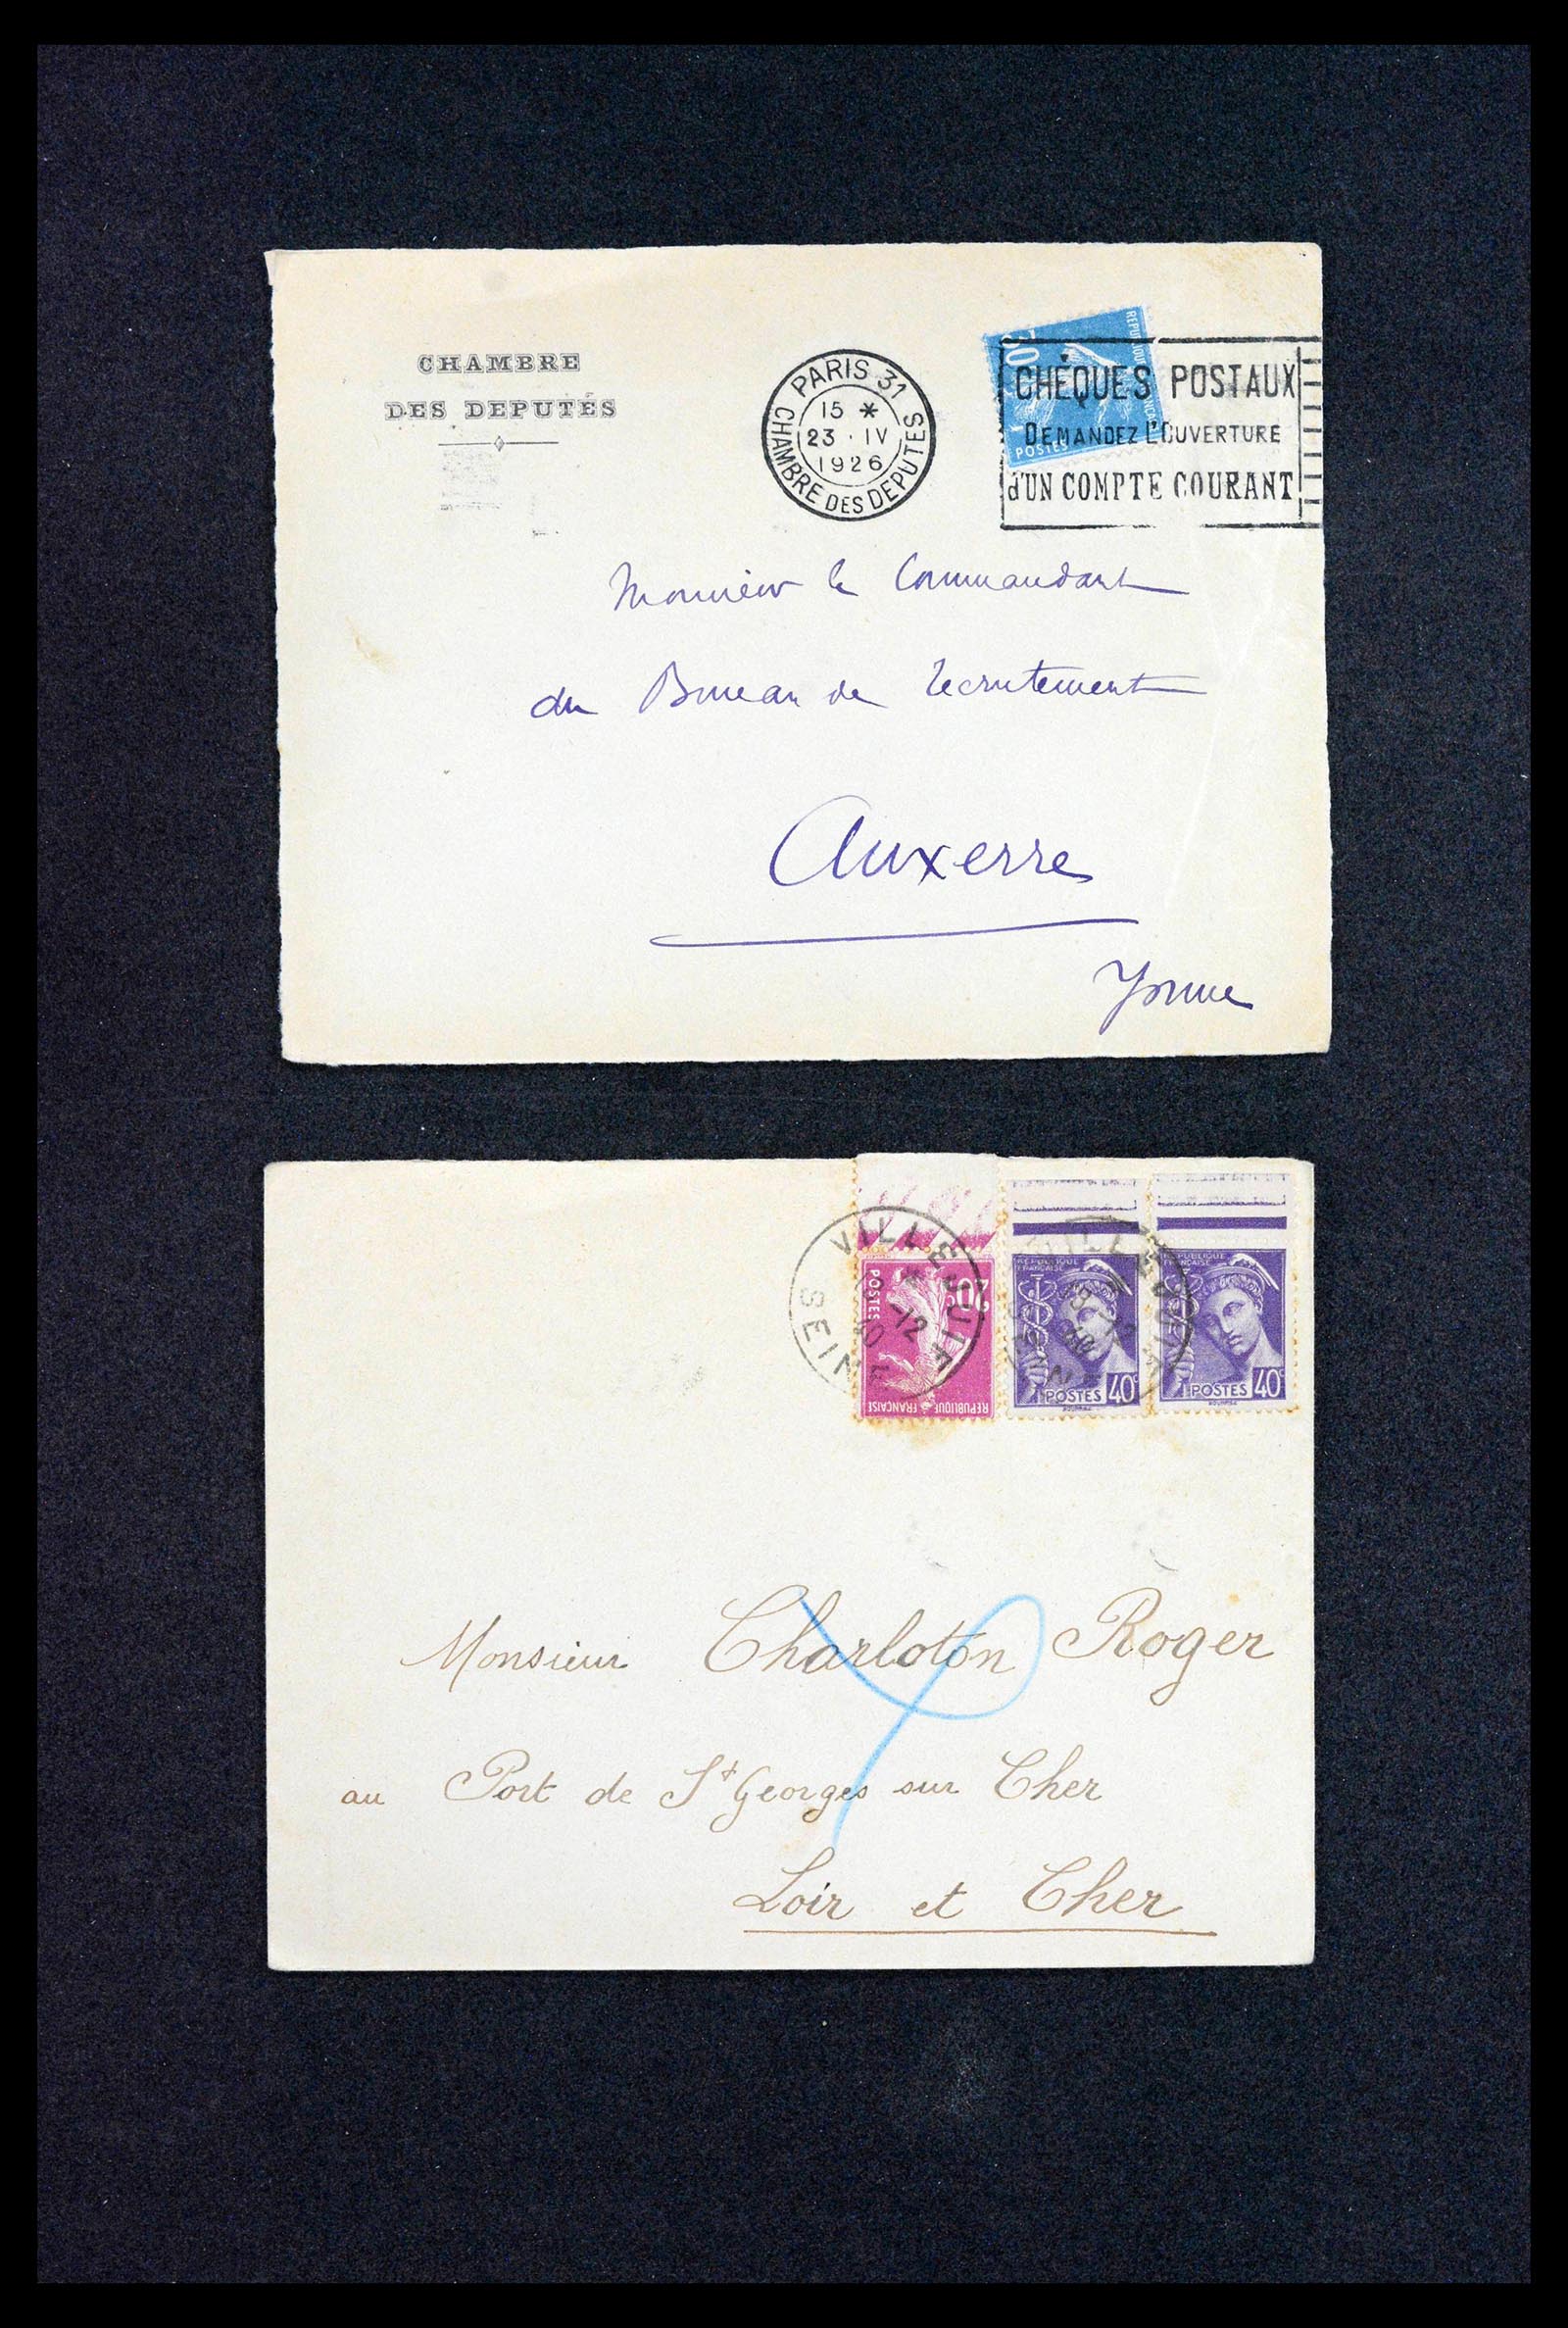 CHAMBRE
DES DEPUTÉS
PARIS 31
15 *
23 · IV
1926
CHAMBRE DES DEPUTES
POSTES
CHÈQUES POSTAUX
DEMANDEZ L'OUVERTURE
d'UN COMPTE COURANT
Monsieur le Commandant
du Bureau de recrutement
Auxerre
Yonne
VILLEJUIF
-12
40
SEINE
20c
POSTES
REPUBLIQUE FRANÇAISE
REPUBLIQUE
FRANÇAISE
POSTES 40c
REPUBLIQUE
FRANÇAISE
POSTES 40c
Monsieur Charloton Roger
au Port de St Georges sur Cher
Loir et Cher